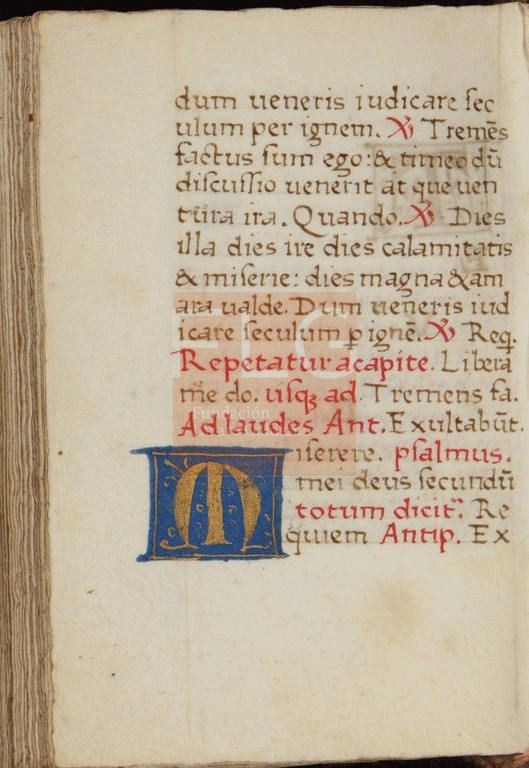 dum ueneris iudicare sec
ulum per ignem. ℣ Tremēs
factus sum ego: & timeo dū
discussio uenerit at que uen
tura ira. Quando. ℣ Dies
illa dies ire dies calamitatis
& miserie: dies magna & am
ara ualde. Dum ueneris iud
icare seculum ꝑ ignē. ℣ Req̃.
Repetatur a capite. Libera
me do. usqꝫ ad. Tremens fa.
Ad laudes Ant. Exultabūt.
Miserere. psalmus.
mei deus secundū
totum dicit᷑. Re
quiem Antip. Ex
FLG
Fundación